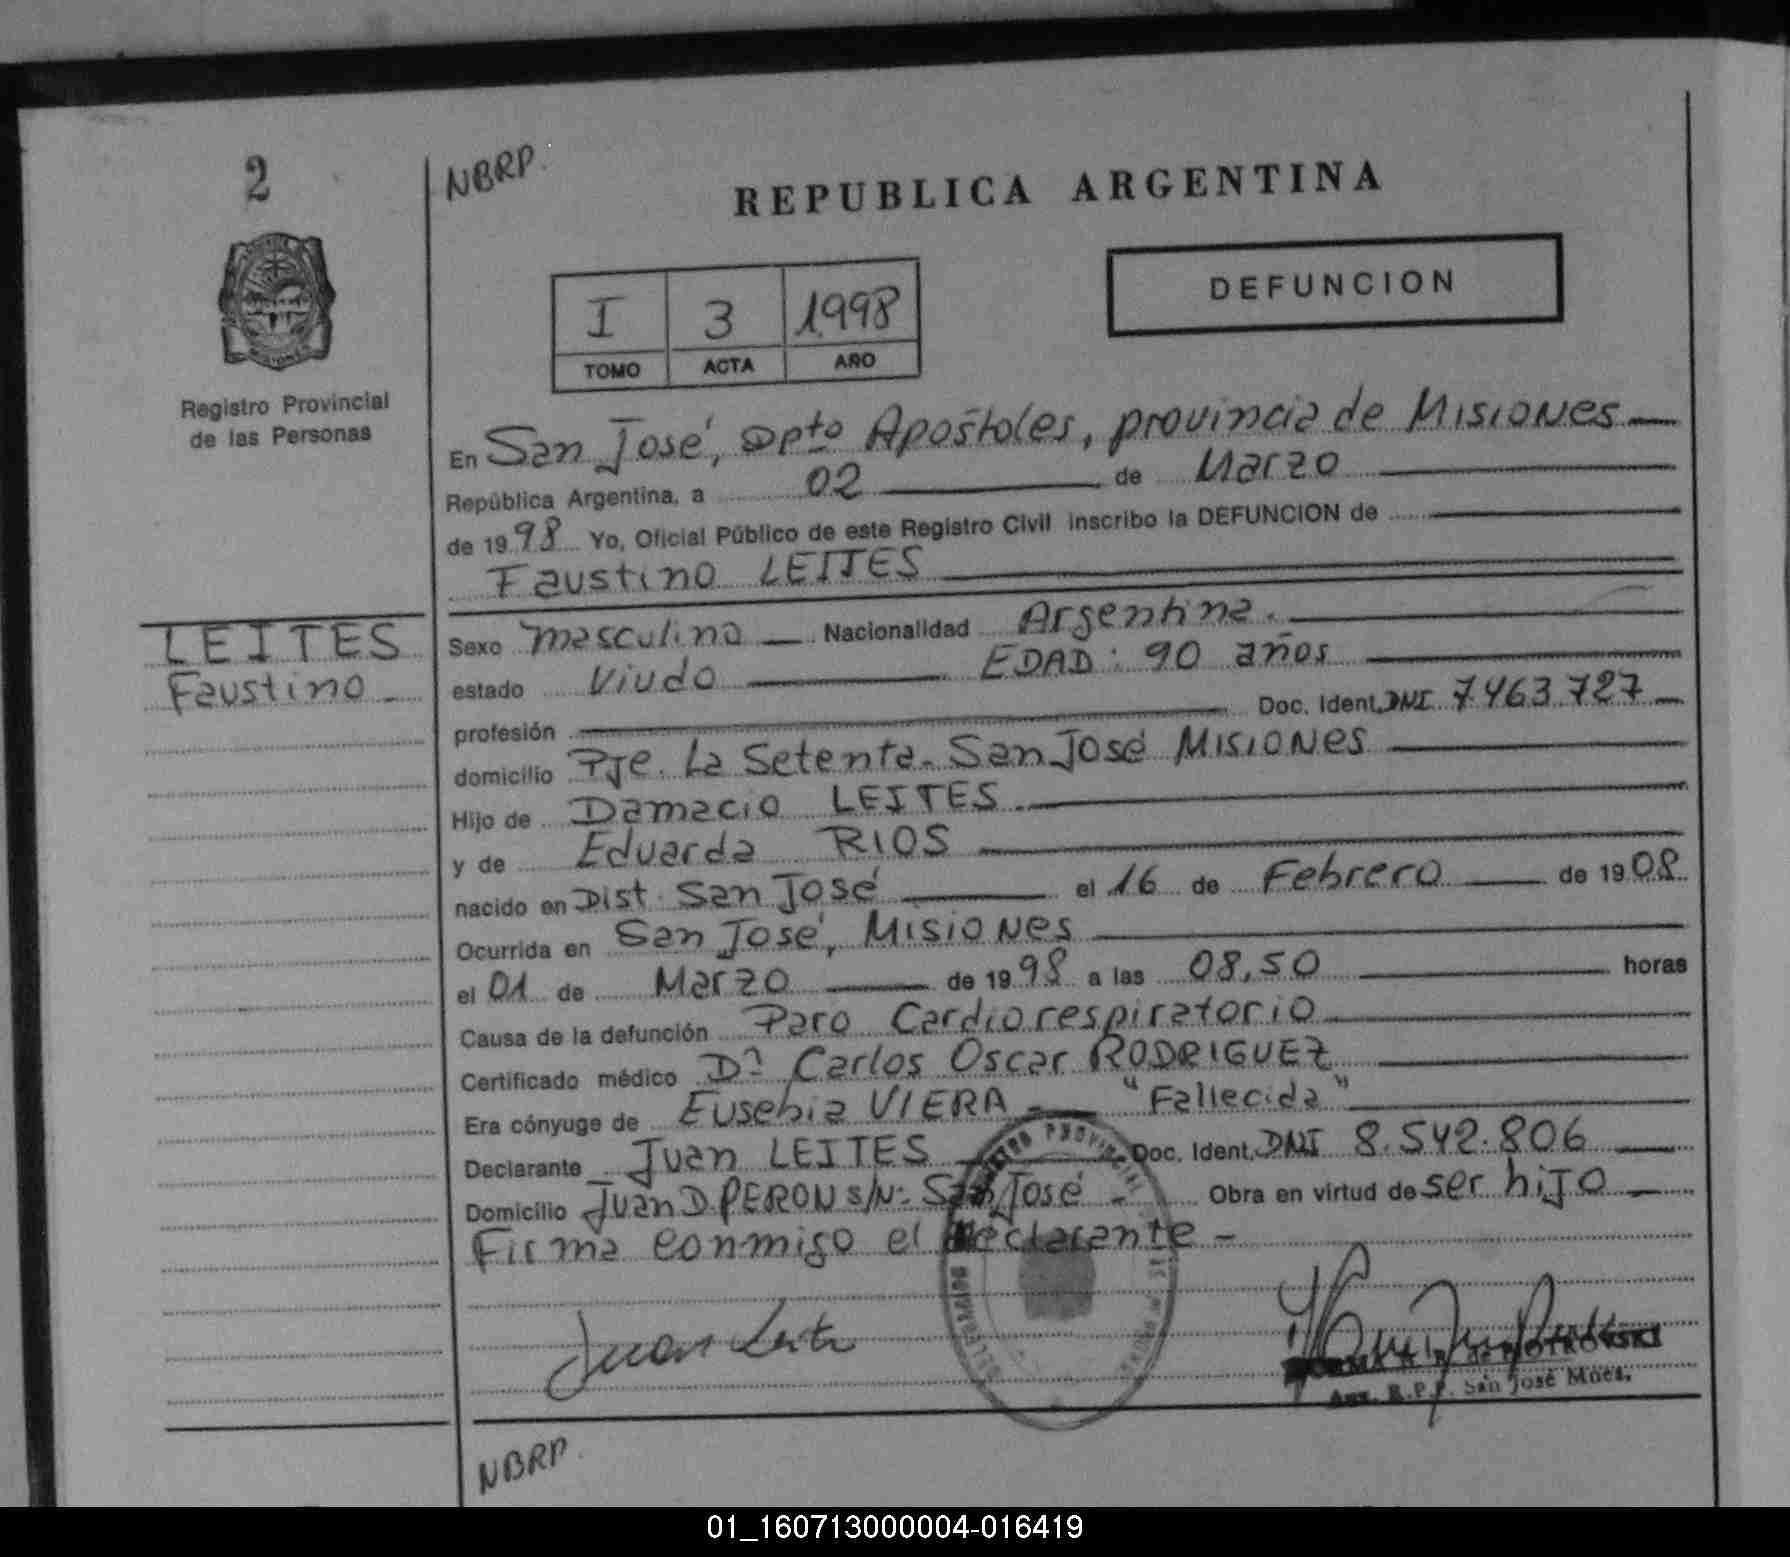 2
NBRP.
REPUBLICA ARGENTINA
DEFUNCION
I 3 1998
TOMO ACTA AÑO
Registro Provincial
de las Personas
En San José, Dpto Apóstoles, provincia de Misiones
República Argentina, a 02 de Marzo
de 1998 Yo, Oficial Público de este Registro Civil inscribo la DEFUNCION de
Faustino LEITES
LEITES
Faustino
Sexo masculino Nacionalidad Argentina.
estado Viudo EDAD: 90 años
profesión Doc. Ident. DNI 7463.727
domicilio Pje. La Setenta. San José Misiones
Hijo de Damacio LEITES
y de Eduarda RIOS
nacido en Dist. San José el 16 de Febrero de 1908
Ocurrida en San José, Misiones
el 01 de Marzo de 1998 a las 08,50 horas
Causa de la defunción Paro Cardiorespiratorio
Certificado médico Dr Carlos Oscar RODRIGUEZ
Era cónyuge de Eusebia VIERA "Fallecida"
Declarante Juan LEITES Doc. Ident. DNI 8.542.806
Domicilio Juan D. PERON s/Nº San José Obra en virtud de ser hijo
Firma conmigo el declarante
Juan Leites
de PIOTROWSKI
Aux. R.P.P. San José Mnes.
NBRP.
01_160713000004-016419